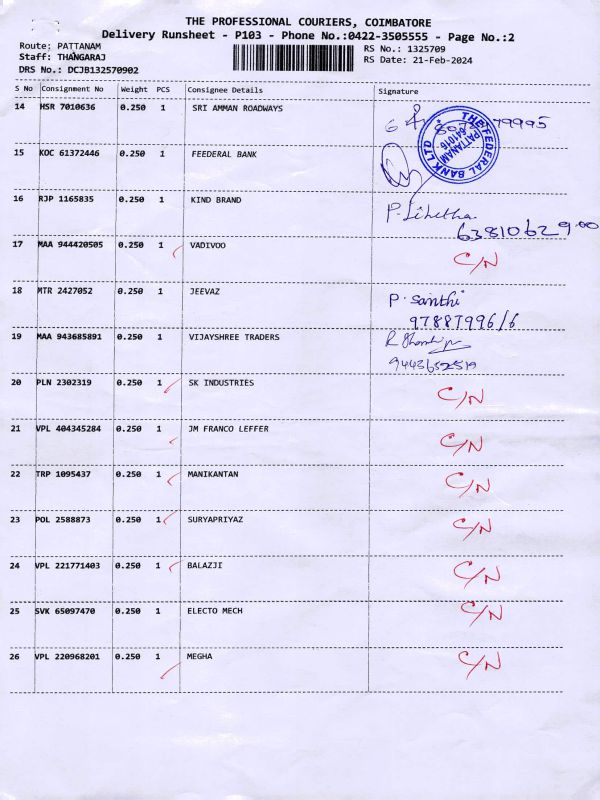 THE PROFESSIONAL COURIERS, COIMBATORE
Delivery Runsheet - P103 - Phone No.:0422-3505555 - Page No.:2
Route: PATTANAM RS No.: 1325709
Staff: THANGARAJ RS Date: 21-Feb-2024
DRS No.: DCJB132570902
S No Consignment No Weight PCS Consignee Details Signature
14 HSR 7010636 0.250 1 SRI AMMAN ROADWAYS
THE FEDERAL BANK LTD
PATTANAM
641016
15 KOC 61372446 0.250 1 FEEDERAL BANK
16 RJP 1165835 0.250 1 KIND BRAND
63810629.00
17 MAA 944420505 0.250 1 VADIVOO C/N
18 MTR 2427052 0.250 1 JEEVAZ P. Santhi
97887996/6
19 MAA 943685891 0.250 1 VIJAYSHREE TRADERS
9443652519
20 PLN 2302319 0.250 1 SK INDUSTRIES C/N
21 VPL 404345284 0.250 1 JM FRANCO LEFFER C/N
22 TRP 1095437 0.250 1 MANIKANTAN C/N
23 POL 2588873 0.250 1 SURYAPRIYAZ C/N
24 VPL 221771403 0.250 1 BALAZJI C/N
25 SVK 65097470 0.250 1 ELECTO MECH C/N
26 VPL 220968201 0.250 1 MEGHA C/N